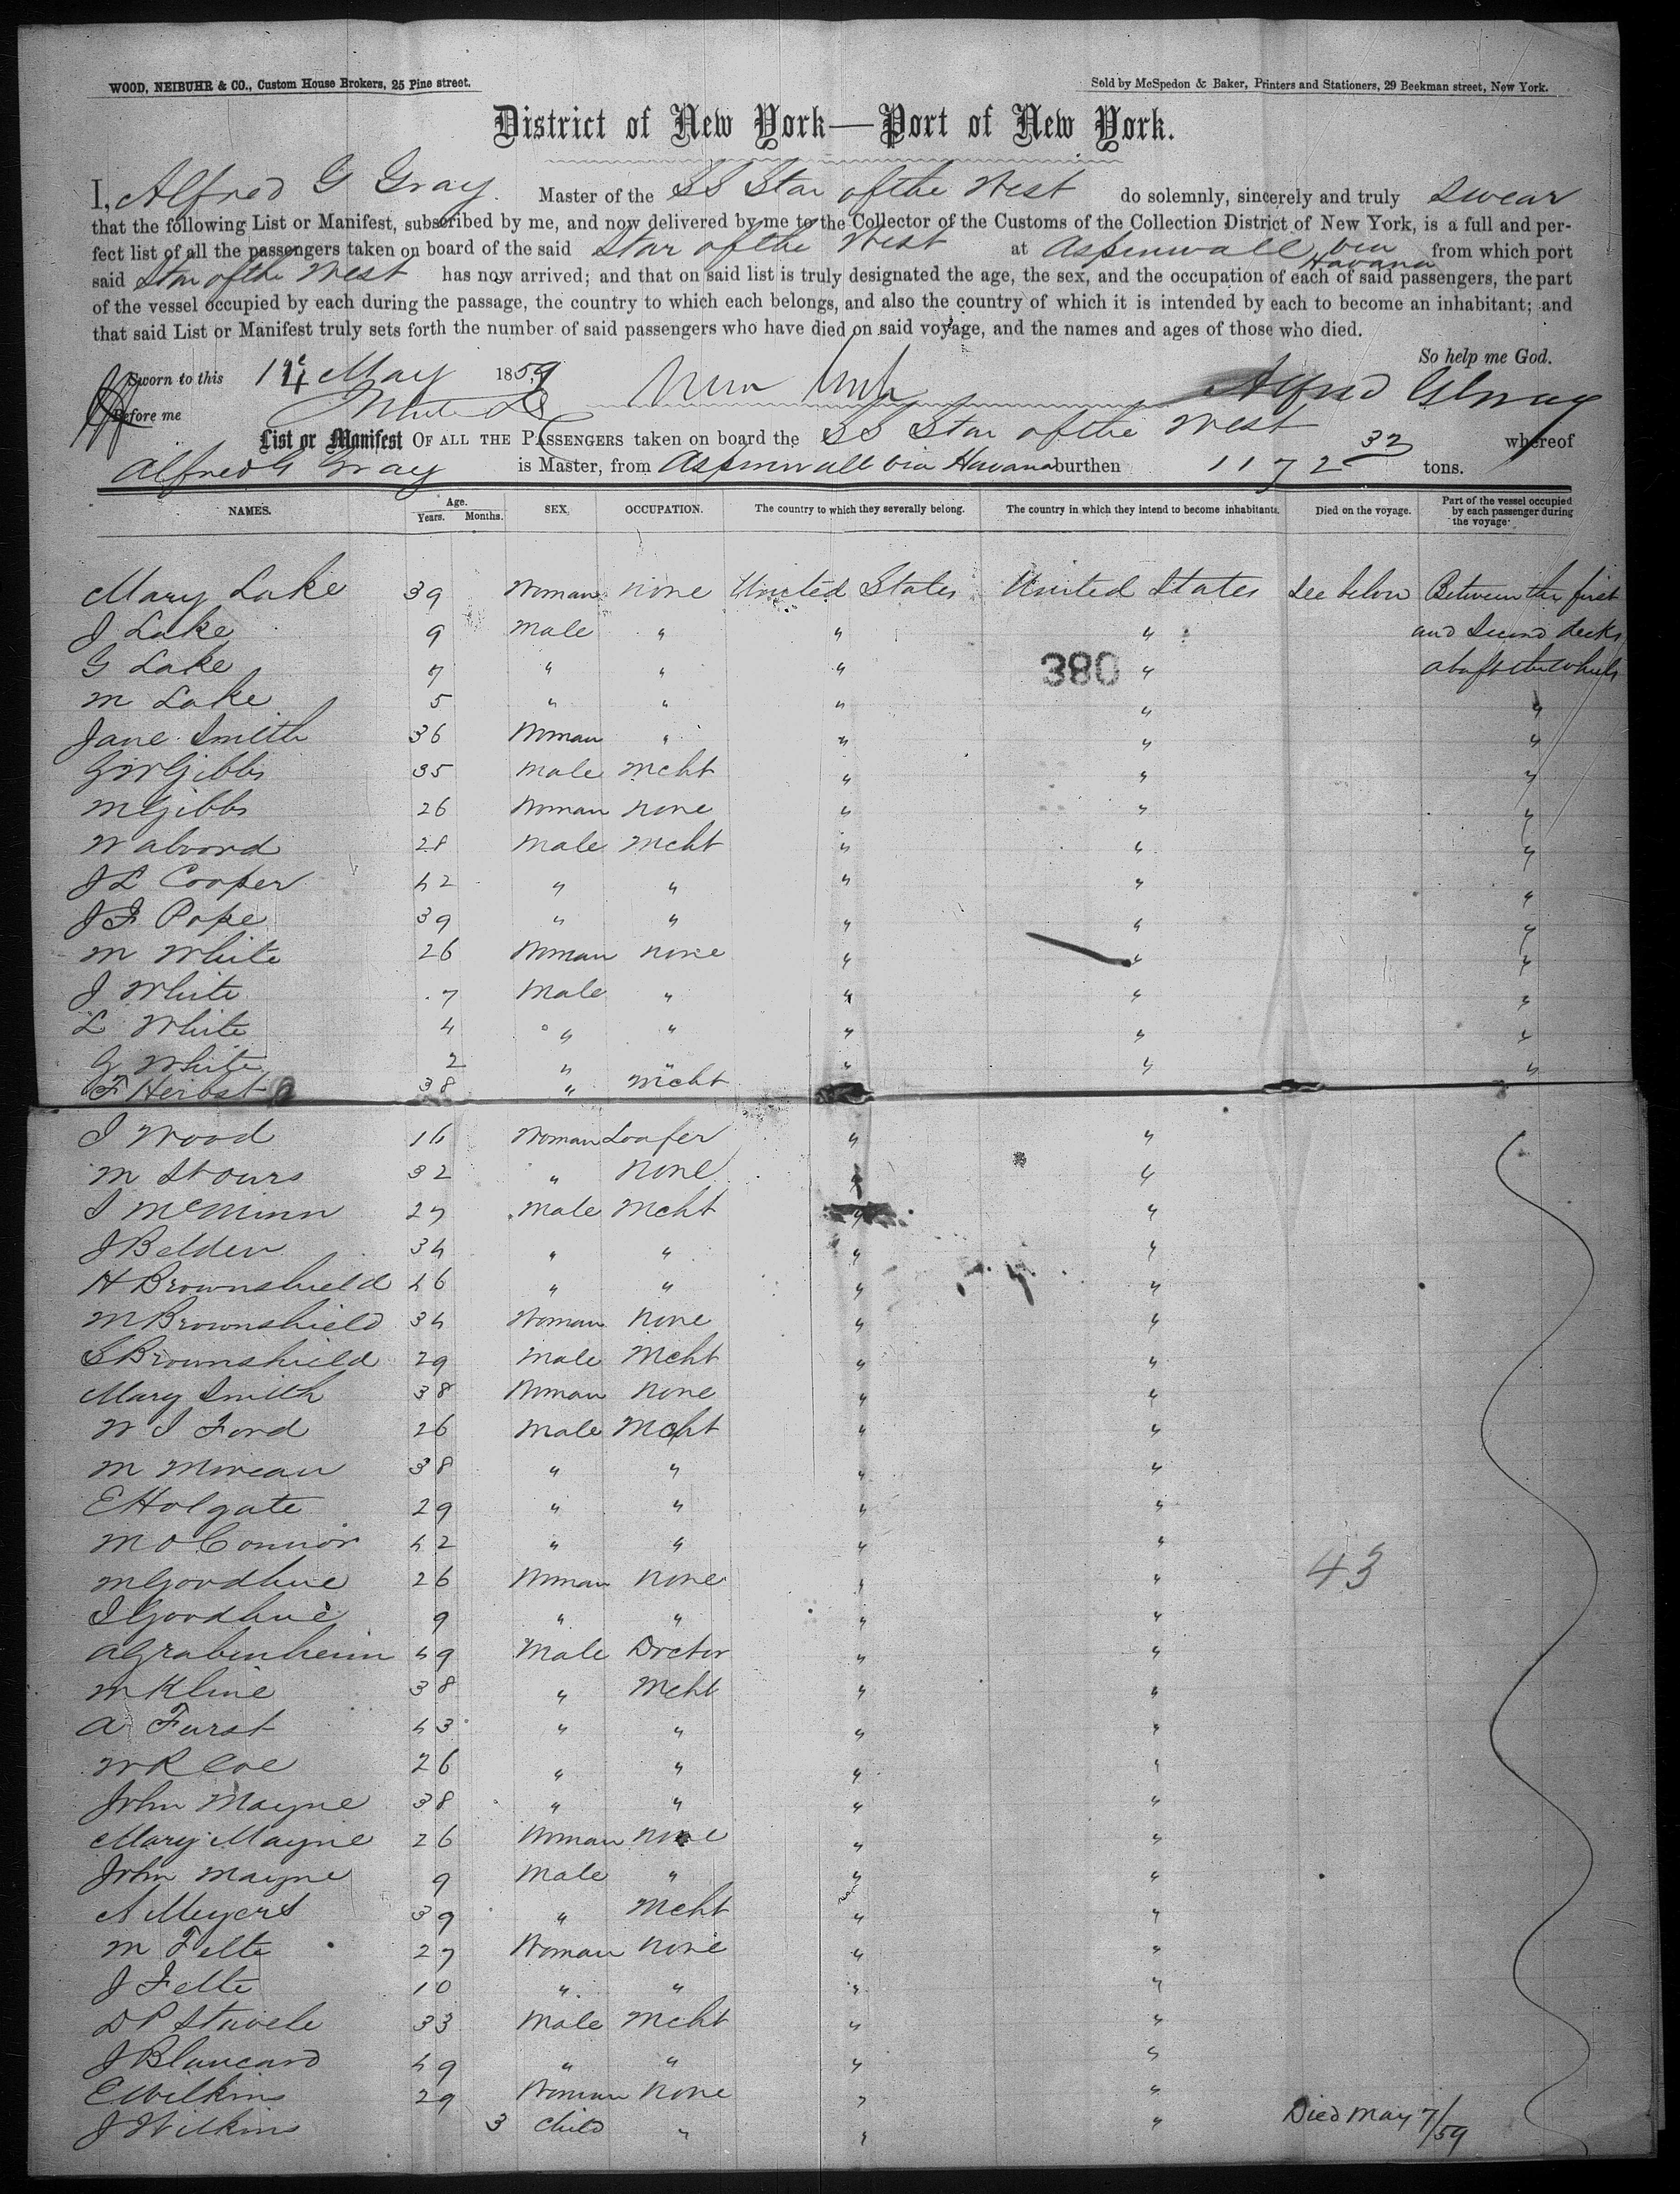 WOOD, NEIBUHR & CO., Custom House Brokers, 25 Pine street.
Sold by McSpedon & Baker, Printers and Stationers, 29 Beekman street, New York.
District of New York—Port of New York.
I, Alfred G Gray Master of the SS Star of the West do solemnly, sincerely and truly swear
that the following List or Manifest, subscribed by me, and now delivered by me to the Collector of the Customs of the Collection District of New York, is a full and per-
fect list of all the passengers taken on board of the said Star of the West at Aspinwall via Havana from which port
said Star of the West has now arrived; and that on said list is truly designated the age, the sex, and the occupation of each of said passengers, the part
of the vessel occupied by each during the passage, the country to which each belongs, and also the country of which it is intended by each to become an inhabitant; and
that said List or Manifest truly sets forth the number of said passengers who have died on said voyage, and the names and ages of those who died.
So help me God.
Sworn to this 14 May 1859 New York Alfred G Gray
Before me
List or Manifest OF ALL THE PASSENGERS taken on board the SS Star of the West whereof
Alfred G Gray is Master, from Aspinwall via Havana burthen 1172 32 tons.
NAMES. Age. Years. Months. SEX. OCCUPATION. The country to which they severally belong. The country in which they intend to become inhabitants. Died on the voyage. Part of the vessel occupied by each passenger during the voyage
Mary Lake 39 Woman none United States United States See below Between the first
J Lake 9 Male " " " and Second decks
G Lake 7 " " " 380 " abaft the wheels
M Lake 5 " " " " "
Jane Smith 36 Woman " " " "
G W Gibbs 35 Male Mcht " " "
M Gibbs 26 Woman none " " "
W Alvord 28 Male Mcht " " "
J L Cooper 42 " " " " "
J F Pope 39 " " " " "
M White 26 Woman none " " "
J White 7 Male " " " "
L White 4 " " " " "
G White 2 " " " " "
F Herbst 38 " Mcht
I Wood 16 Woman Loafer " "
M Stours 32 " none " "
I McMinn 27 Male Mcht " "
J Belden 34 " " " "
H Brownshield 46 " " " "
M Brownshield 34 Woman none " "
S Brownshield 29 Male Mcht " "
Mary Smith 38 Woman none " "
W I Ford 26 Male Mcht " "
M Moreau 38 " " " "
E Holgate 29 " " " "
M O Connor 42 " " " "
M Goodhue 26 Woman none " " 43
I Goodhue 9 " " " "
A Grabenheim 49 Male Doctor " "
M Kline 38 " Mcht " "
A Furst 43 " " " "
W R Coe 26 " " " "
John Mayne 38 " " " "
Mary Mayne 26 Woman none " "
John Mayne 9 Male " " "
A Meyers 39 " Mcht " "
M Felte 27 Woman none " "
J Felte 10 " " " "
D P Stavele 33 Male Mcht " "
J Blancard 49 " " " "
E Wilkins 29 Woman none " "
J Wilkins 3 Child " " " Died May 7/59